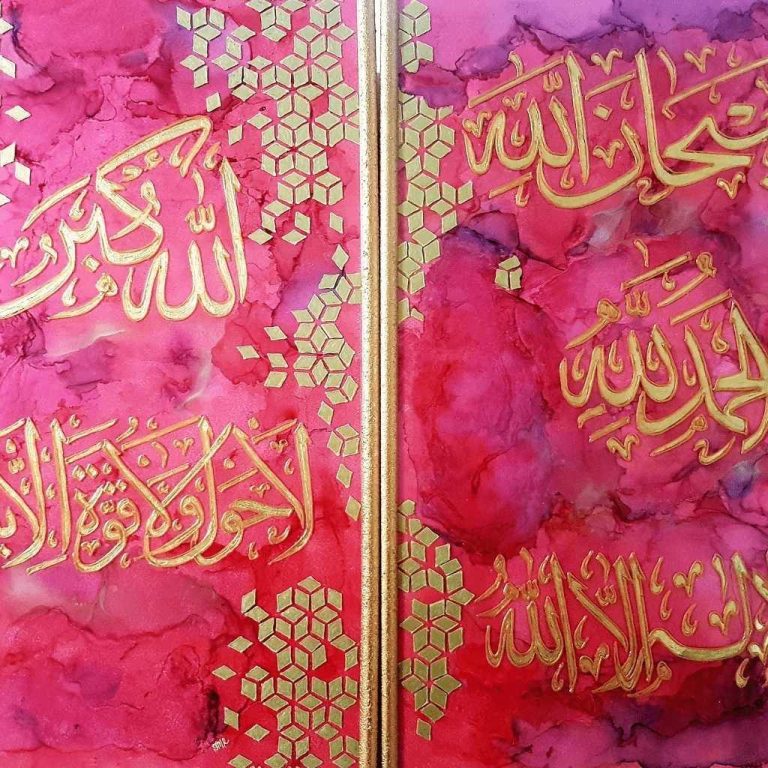 سبحان الله
الحمد لله
إله إلا الله
الله أكبر
لا حول ولا قوة إلا